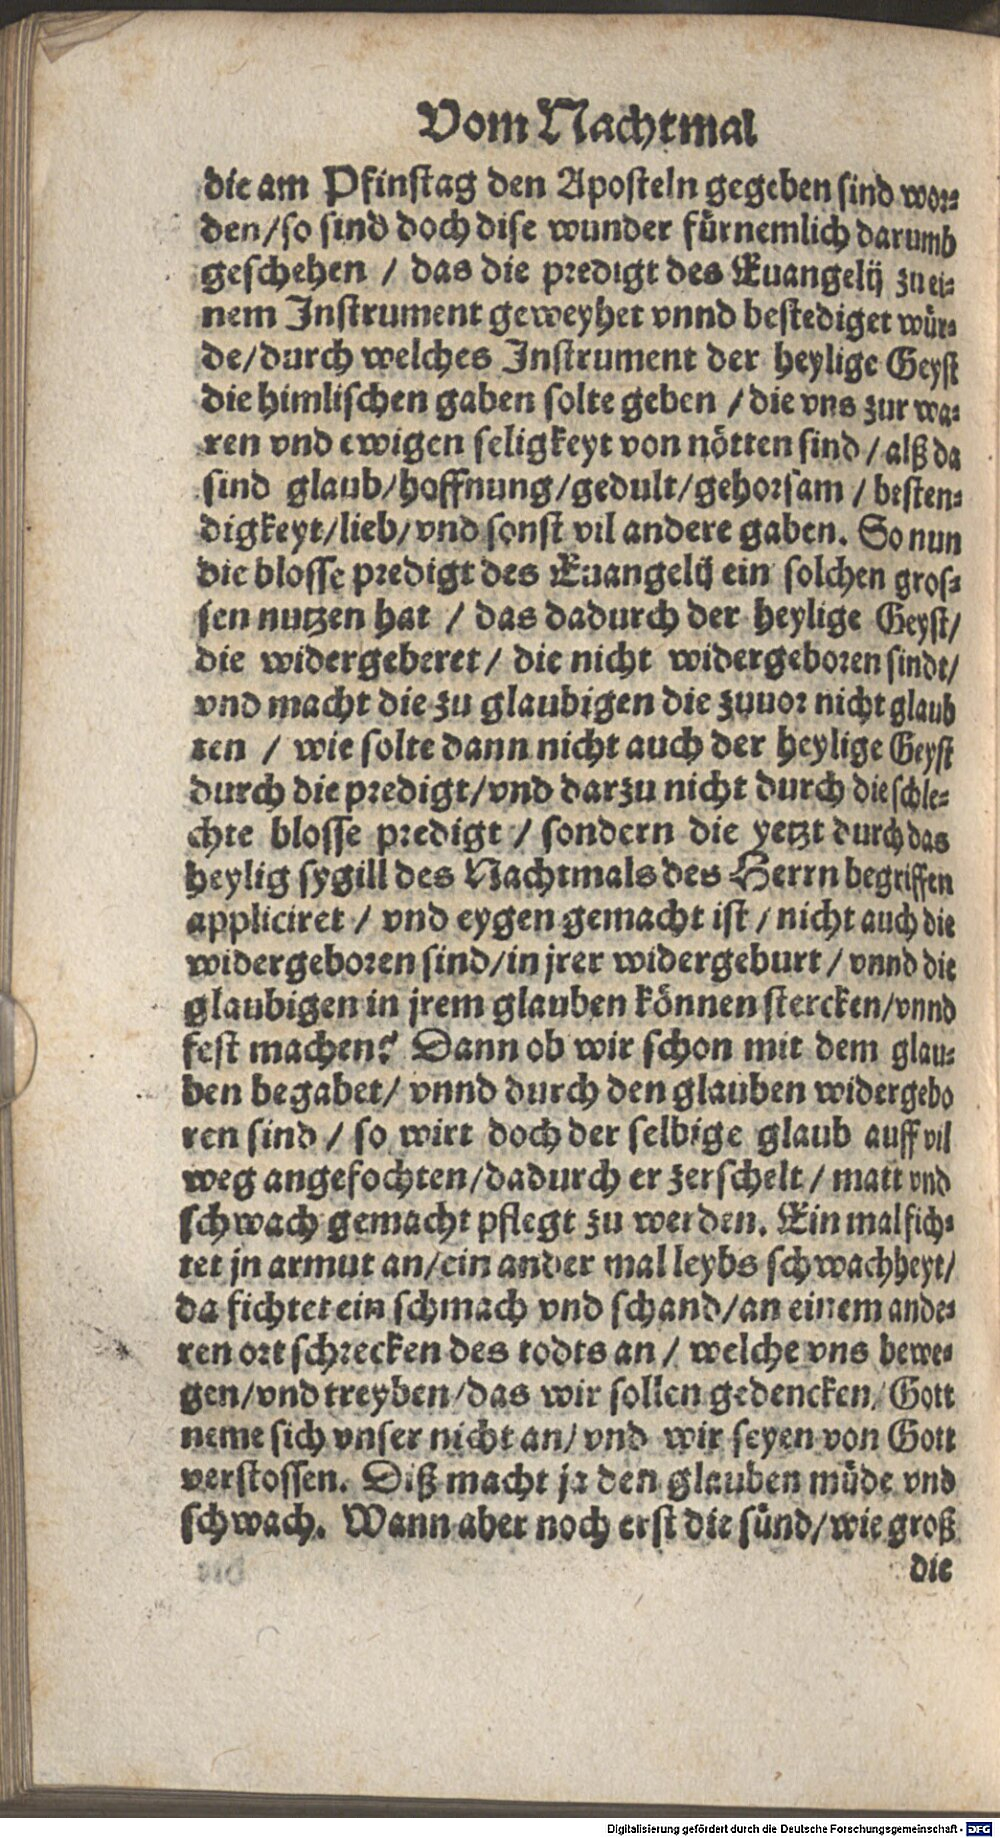 Vom Nachtmal
die am Pfinstag den Aposteln gegeben sind wor⸗
den/so sind doch dise wunder fürnemlich darumb
geschehen / das die predigt des Euangelij zu ei⸗
nem Instrument geweyhet vnnd bestediget wür⸗
de/durch welches Instrument der heylige Geyst
die himlischen gaben solte geben / die vns zur wa⸗
ren vnd ewigen seligkeyt von nötten sind / alß da
sind glaub/hoffnung/gedult/gehorsam / besten⸗
digkeyt/lieb/vnd sonst vil andere gaben. So nun
die blosse predigt des Euangelij ein solchen gros⸗
sen nutzen hat / das dadurch der heylige Geyst/
die widergeberet/ die nicht widergeboren sindt/
vnd macht die zu glaubigen die zuuor nicht glaub
ten / wie solte dann nicht auch der heylige Geyst
durch die predigt/vnd darzu nicht durch die schle⸗
chte blosse predigt / sondern die yetzt durch das
heylig sygill des Nachtmals des Herrn begriffen
appliciret / vnd eygen gemacht ist / nicht auch die
widergeboren sind/in jrer widergeburt / vnnd die
glaubigen in jrem glauben können stercken/vnnd
fest machen? Dann ob wir schon mit dem glau⸗
ben begabet/ vnnd durch den glauben widergebo
ren sind / so wirt doch der selbige glaub auff vil
weg angefochten/dadurch er zerschelt / matt vnd
schwach gemacht pflegt zu werden. Ein mal fich⸗
tet jn armut an/ein ander mal leybs schwachheyt/
da fichtet ein schmach vnd schand/an einem ande⸗
ren ort schrecken des todts an / welche vns bewe⸗
gen/vnd treyben/das wir sollen gedencken/ Gott
neme sich vnser nicht an/ vnd wir seyen von Gott
verstossen. Diß macht ja den glauben müde vnd
schwach. Wann aber noch erst die sünd/wie groß
die
Digitalisierung gefördert durch die Deutsche Forschungsgemeinschaft - DFG